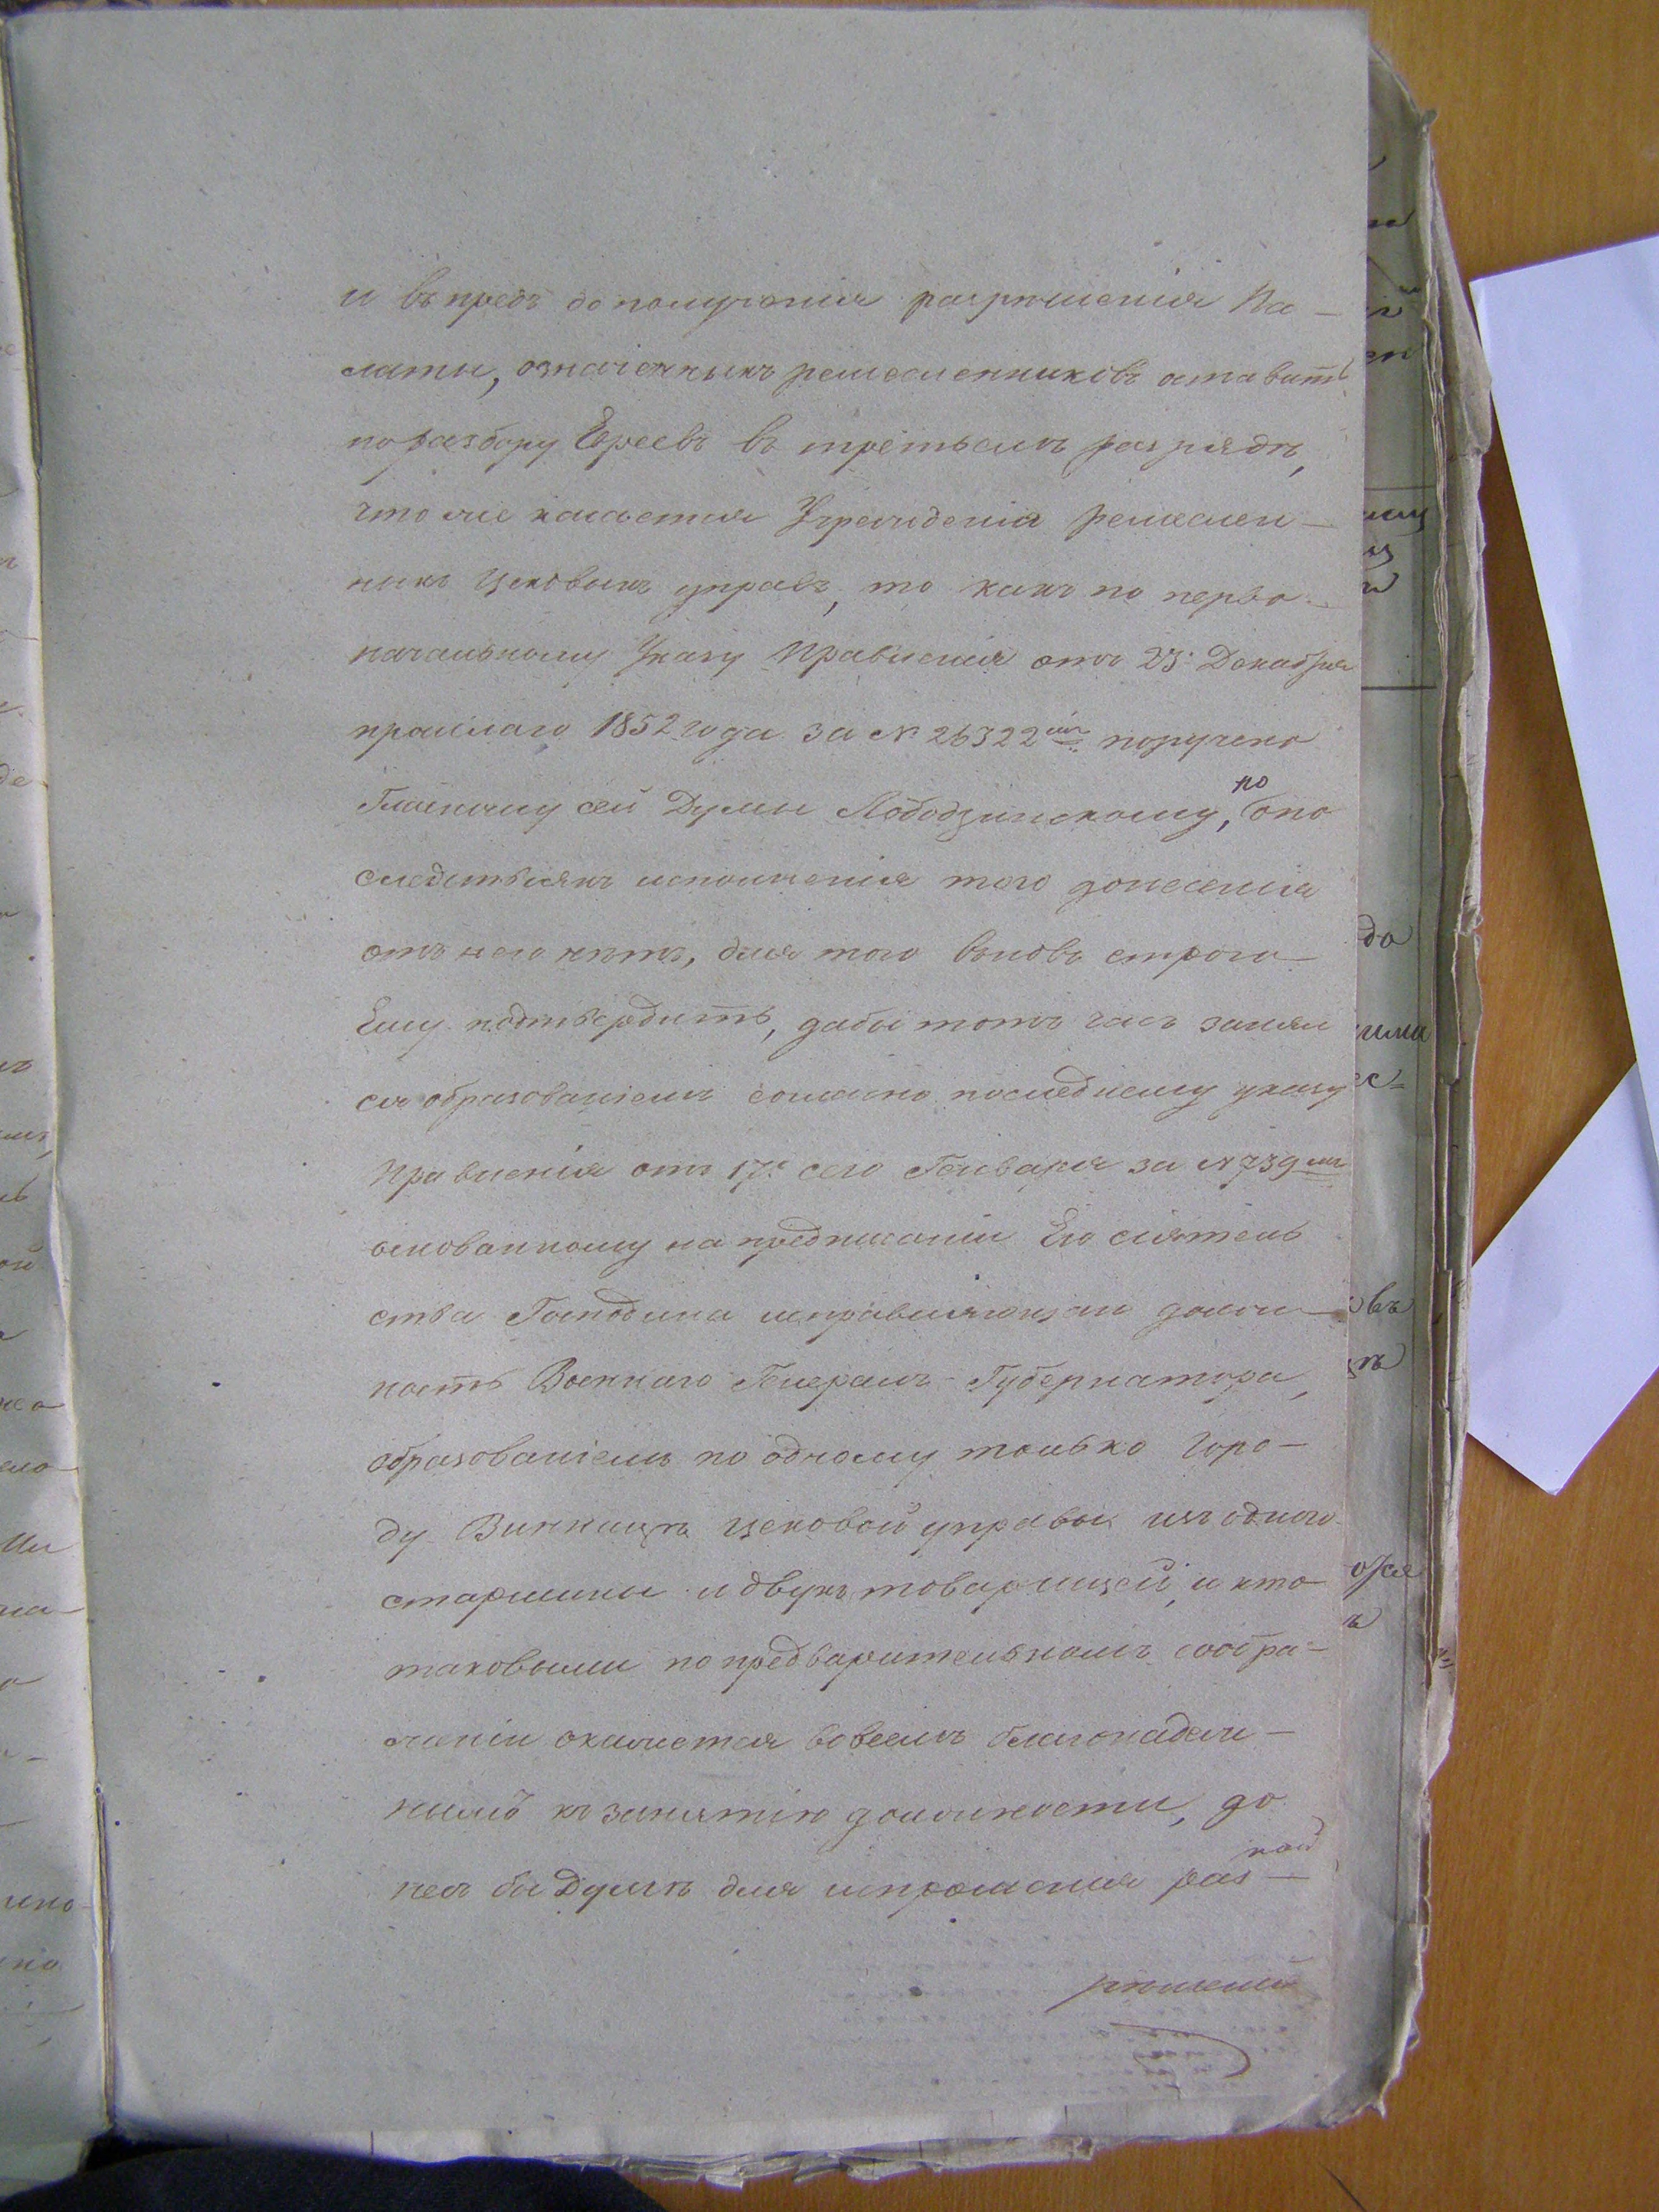 и въ предъ до полученія разрѣшенія Па-
латы, означенныхъ ремесленниковъ оставить
по разбору Евреевъ въ третьемъ разрядѣ,
что же касается Учрежденія ремеслен-
ныхъ Цеховыхъ управъ, то какъ по перво-
начальному Указу Правленія отъ 23. Декабря
прошлаго 1852 года за № 26322мъ поручено
Гласному сей Думы Лободзинскому, но
о по
следствіяхъ исполненія того донесенія
отъ него нѣтъ, для того вновь строго
Ему подтвердить, дабы тотъ часъ занял
ся образованіемъ согласно последнему указу
Правленія отъ 17. сего Генваря за № 739мъ
основанному на предписаніи Его сіятель
ства Господина исправляющаго долж-
ность Военнаго Генералъ-Губернатора,
образованіемъ по одному только Горо-
ду Винницѣ цеховой управы изъ одного
старшины и двухъ товарищей, и кто
таковыми по предварительномъ сообра-
женіи окажется вовсемъ благонадеж-
нымъ къ занятію должности, до
несъ бы Думѣ для испрошенія раз-
рѣшенія